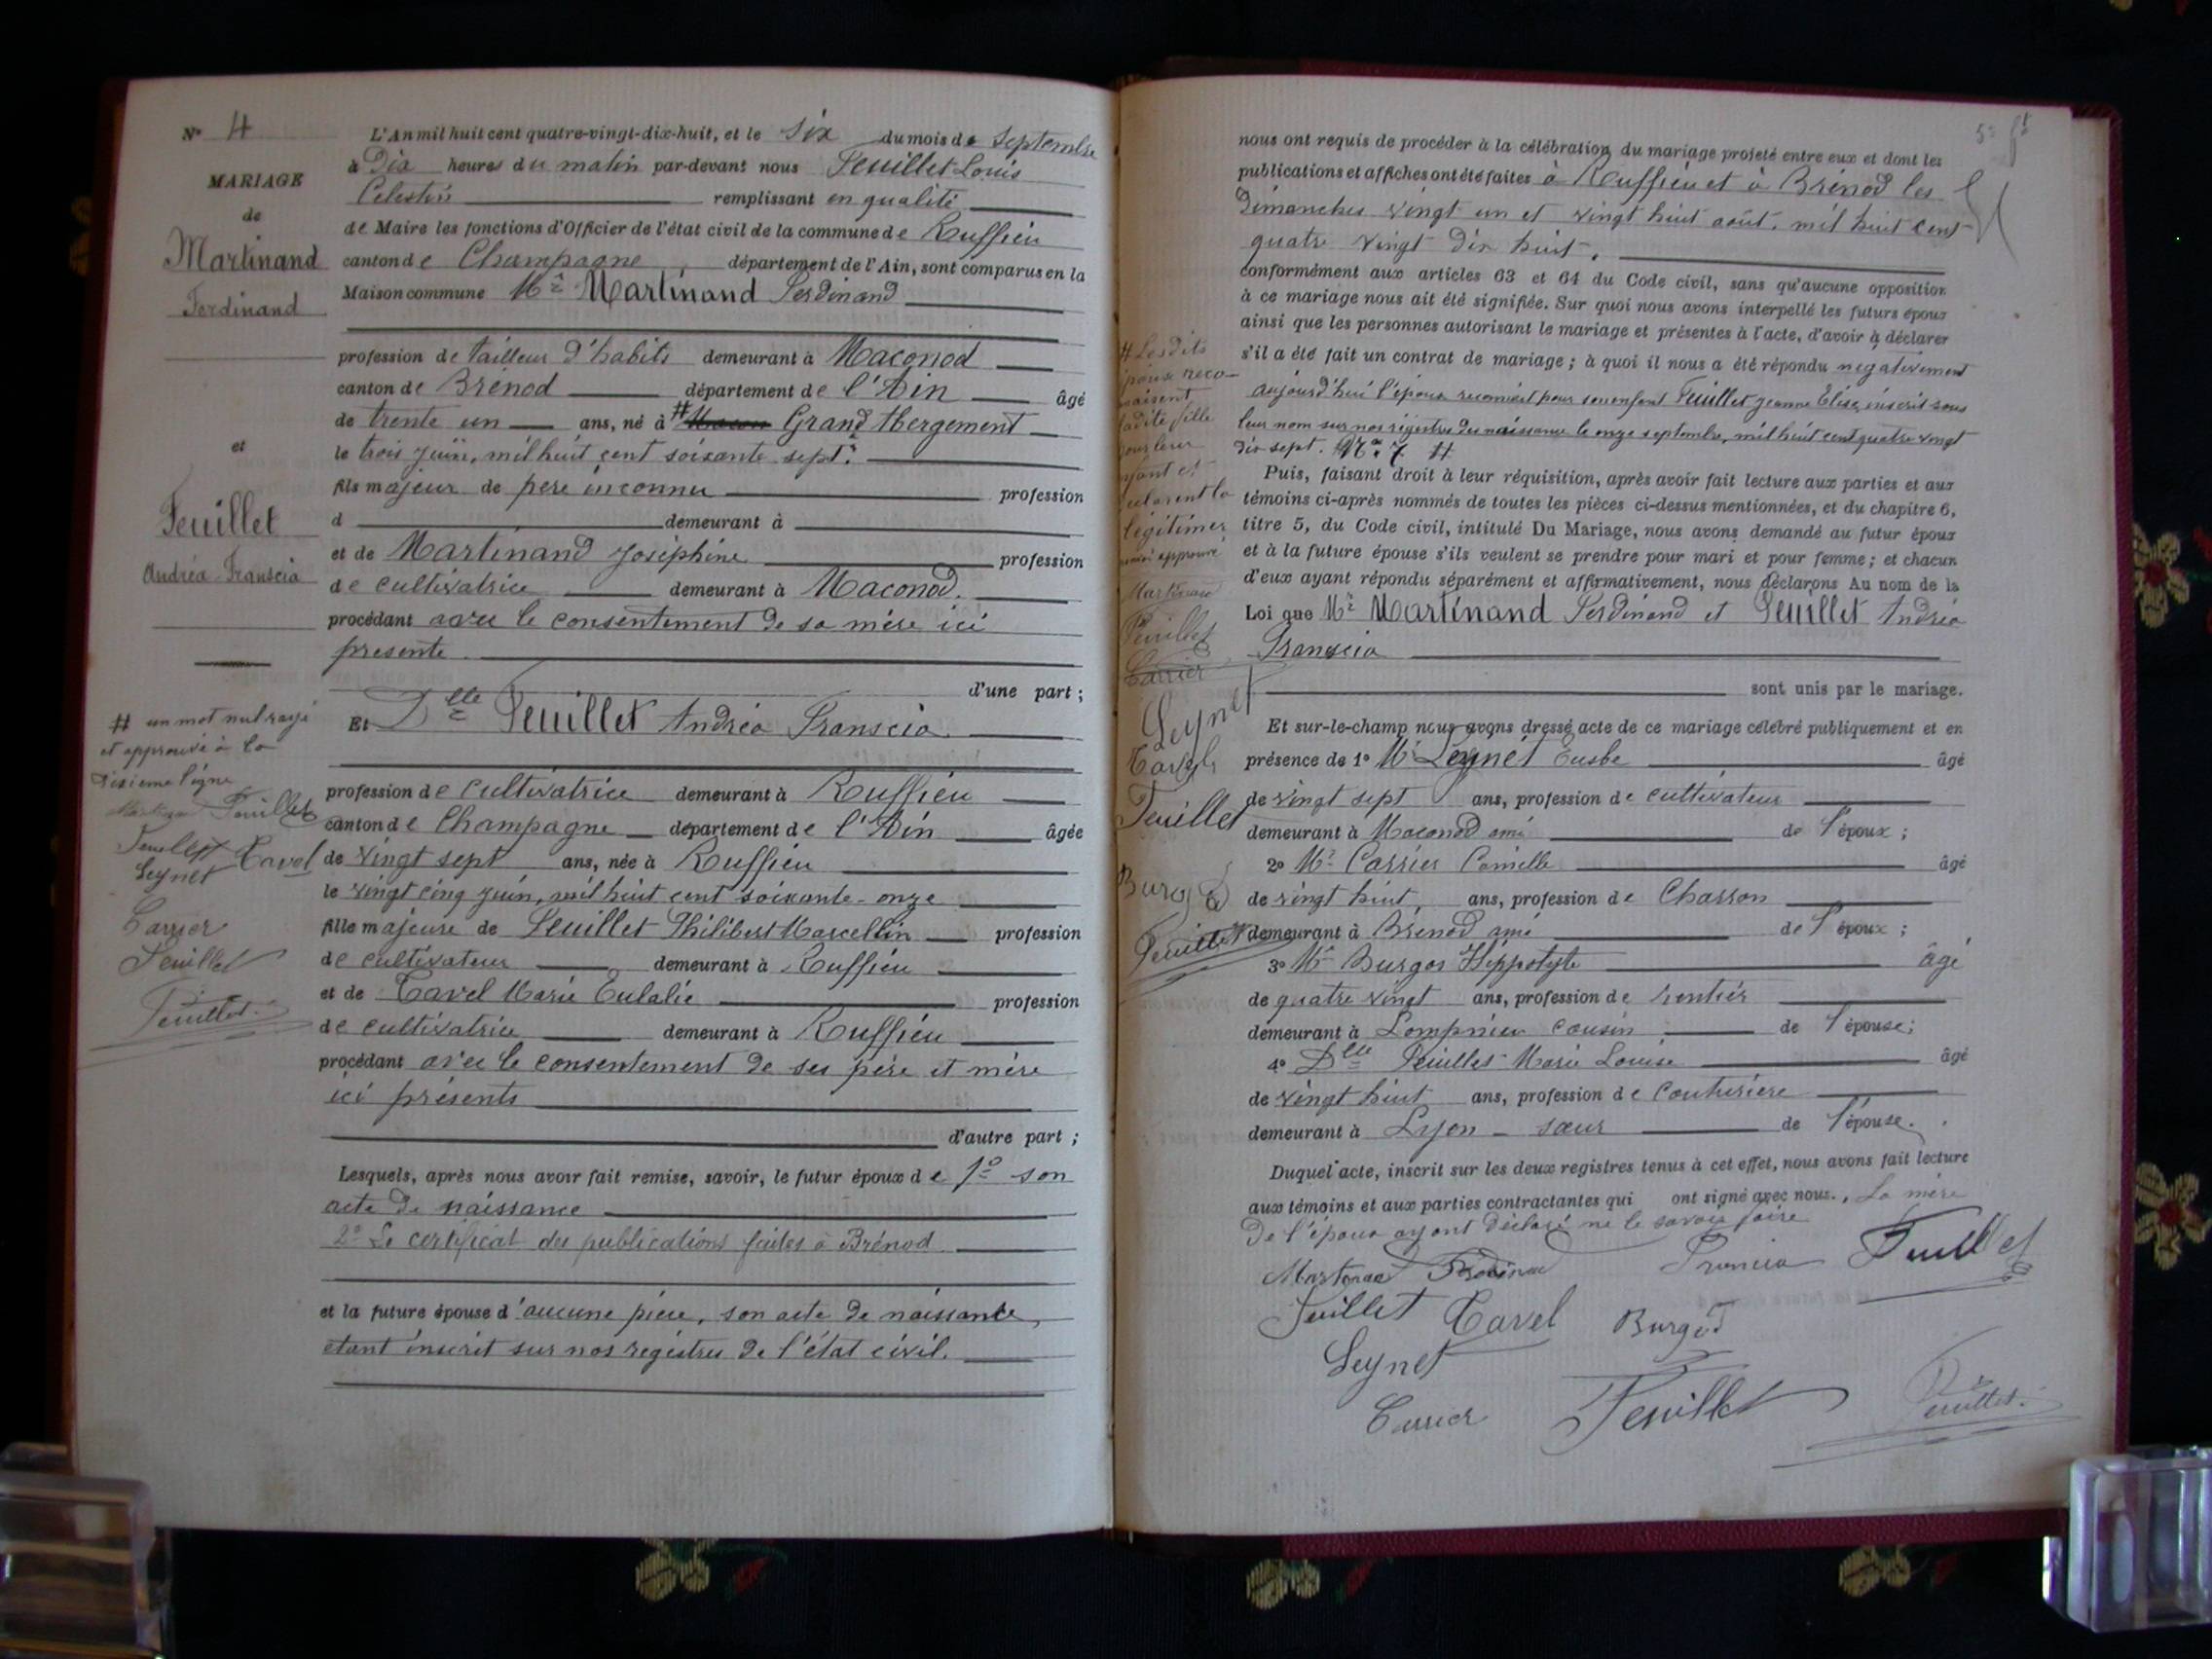 N° 4
MARIAGE
de
Martinand
Ferdinand
et
Feuillet
Andréa Franscia
# un mot nul rayé
et approuvé à la
Feuillet
Feuillet Cavel
Seynet
Carrier
Feuillet
Feuillet
L'An mil huit cent quatre-vingt-dix-huit, et le six du mois de Septembre
à Dix heures du matin par-devant nous Feuillet Louis
Celestin remplissant en qualité
de Maire les fonctions d'Officier de l'état civil de la commune de Ruffieu
canton de Champagne département de l'Ain, sont comparus en la
Maison commune Mr Martinand Ferdinand
profession de tailleur d'habits demeurant à Maconod
canton de Brénod département de l'Ain âgé
de trente un ans, né à # Grand Abergement
le trois juin, mil huit cent soixante sept.
fils majeur de père inconnu profession
d demeurant à
et de Martinand Joséphine profession
de cultivatrice demeurant à Maconod.
procédant avec le consentement de sa mère ici
présente
d'une part ;
Et Dlle Feuillet Andréa Franscia
profession de cultivatrice demeurant à Ruffieu
canton de Champagne département de l'Ain âgée
de vingt sept ans, née à Ruffieu
le vingt cinq juin, mil huit cent soixante-onze
fille majeure de Feuillet Philibert Marcellin profession
de cultivateur demeurant à Ruffieu
et de Cavel Marie Eulalie profession
de cultivatrice demeurant à Ruffieu
procédant avec le consentement de ses père et mère
ici présents
d'autre part ;
Lesquels, après nous avoir fait remise, savoir, le futur époux de 1° son
acte de naissance
2° Le certificat des publications faites à Brénod
et la future épouse d'aucune pièce, son acte de naissance
étant inscrit sur nos registres de l'état civil.
nous ont requis de procéder à la célébration du mariage projeté entre eux et dont les
publications et affiches ont été faites à Ruffieu et à Brénod les
Dimanches vingt un et vingt huit août, mil huit cent
quatre vingt dix huit,
conformément aux articles 63 et 64 du Code civil, sans qu'aucune opposition
à ce mariage nous ait été signifiée. Sur quoi nous avons interpellé les futurs époux
ainsi que les personnes autorisant le mariage et présentes à l'acte, d'avoir à déclarer
s'il a été fait un contrat de mariage ; à quoi il nous a été répondu négativement
aujourd'hui l'époux reconnait pour son enfant Feuillet Jeanne Elise, inscrit sous
leur nom sur nos registres de naissance le onze septembre, mil huit cent quatre vingt
dix sept. N° 7 #
Puis, faisant droit à leur réquisition, après avoir fait lecture aux parties et aux
témoins ci-après nommés de toutes les pièces ci-dessus mentionnées, et du chapitre 6,
titre 5, du Code civil, intitulé Du Mariage, nous avons demandé au futur époux
et à la future épouse s'ils veulent se prendre pour mari et pour femme ; et chacun
d'eux ayant répondu séparément et affirmativement, nous déclarons Au nom de la
Loi que Mr Martinand Ferdinand et Feuillet Andréa
Franscia
sont unis par le mariage.
Et sur-le-champ nous avons dressé acte de ce mariage célébré publiquement et en
présence de 1° Mr Seynet Eusbe âgé
de vingt sept ans, profession de cultivateur
demeurant à Maconod ami de l'époux ;
2° Mr Carrier Camille âgé
de vingt huit, ans, profession de Charron
demeurant à Brénod ami de l'époux ;
3° Mr Burgos Hippolyte âgé
de quatre vingt ans, profession de rentier
demeurant à Lompnieu cousin de l'épouse ;
4° Dlle Feuillet Marie Louise âgé
de vingt huit ans, profession de Couturière
demeurant à Lyon - sœur de l'épouse.
Duquel acte, inscrit sur les deux registres tenus à cet effet, nous avons fait lecture
aux témoins et aux parties contractantes qui ont signé avec nous., La mère
De l'époux ayant déclaré ne le savoir faire
Feuillet
Feuillet Cavel Burgod
Seynet
Carrier Feuillet Feuillet
# Lesdits
époux reco-
naissent
ladite fille
pour leur
légitimer
Martinand
Feuillet
Carrier
Seynet
Cavel
Feuillet
Burgod
Feuillet